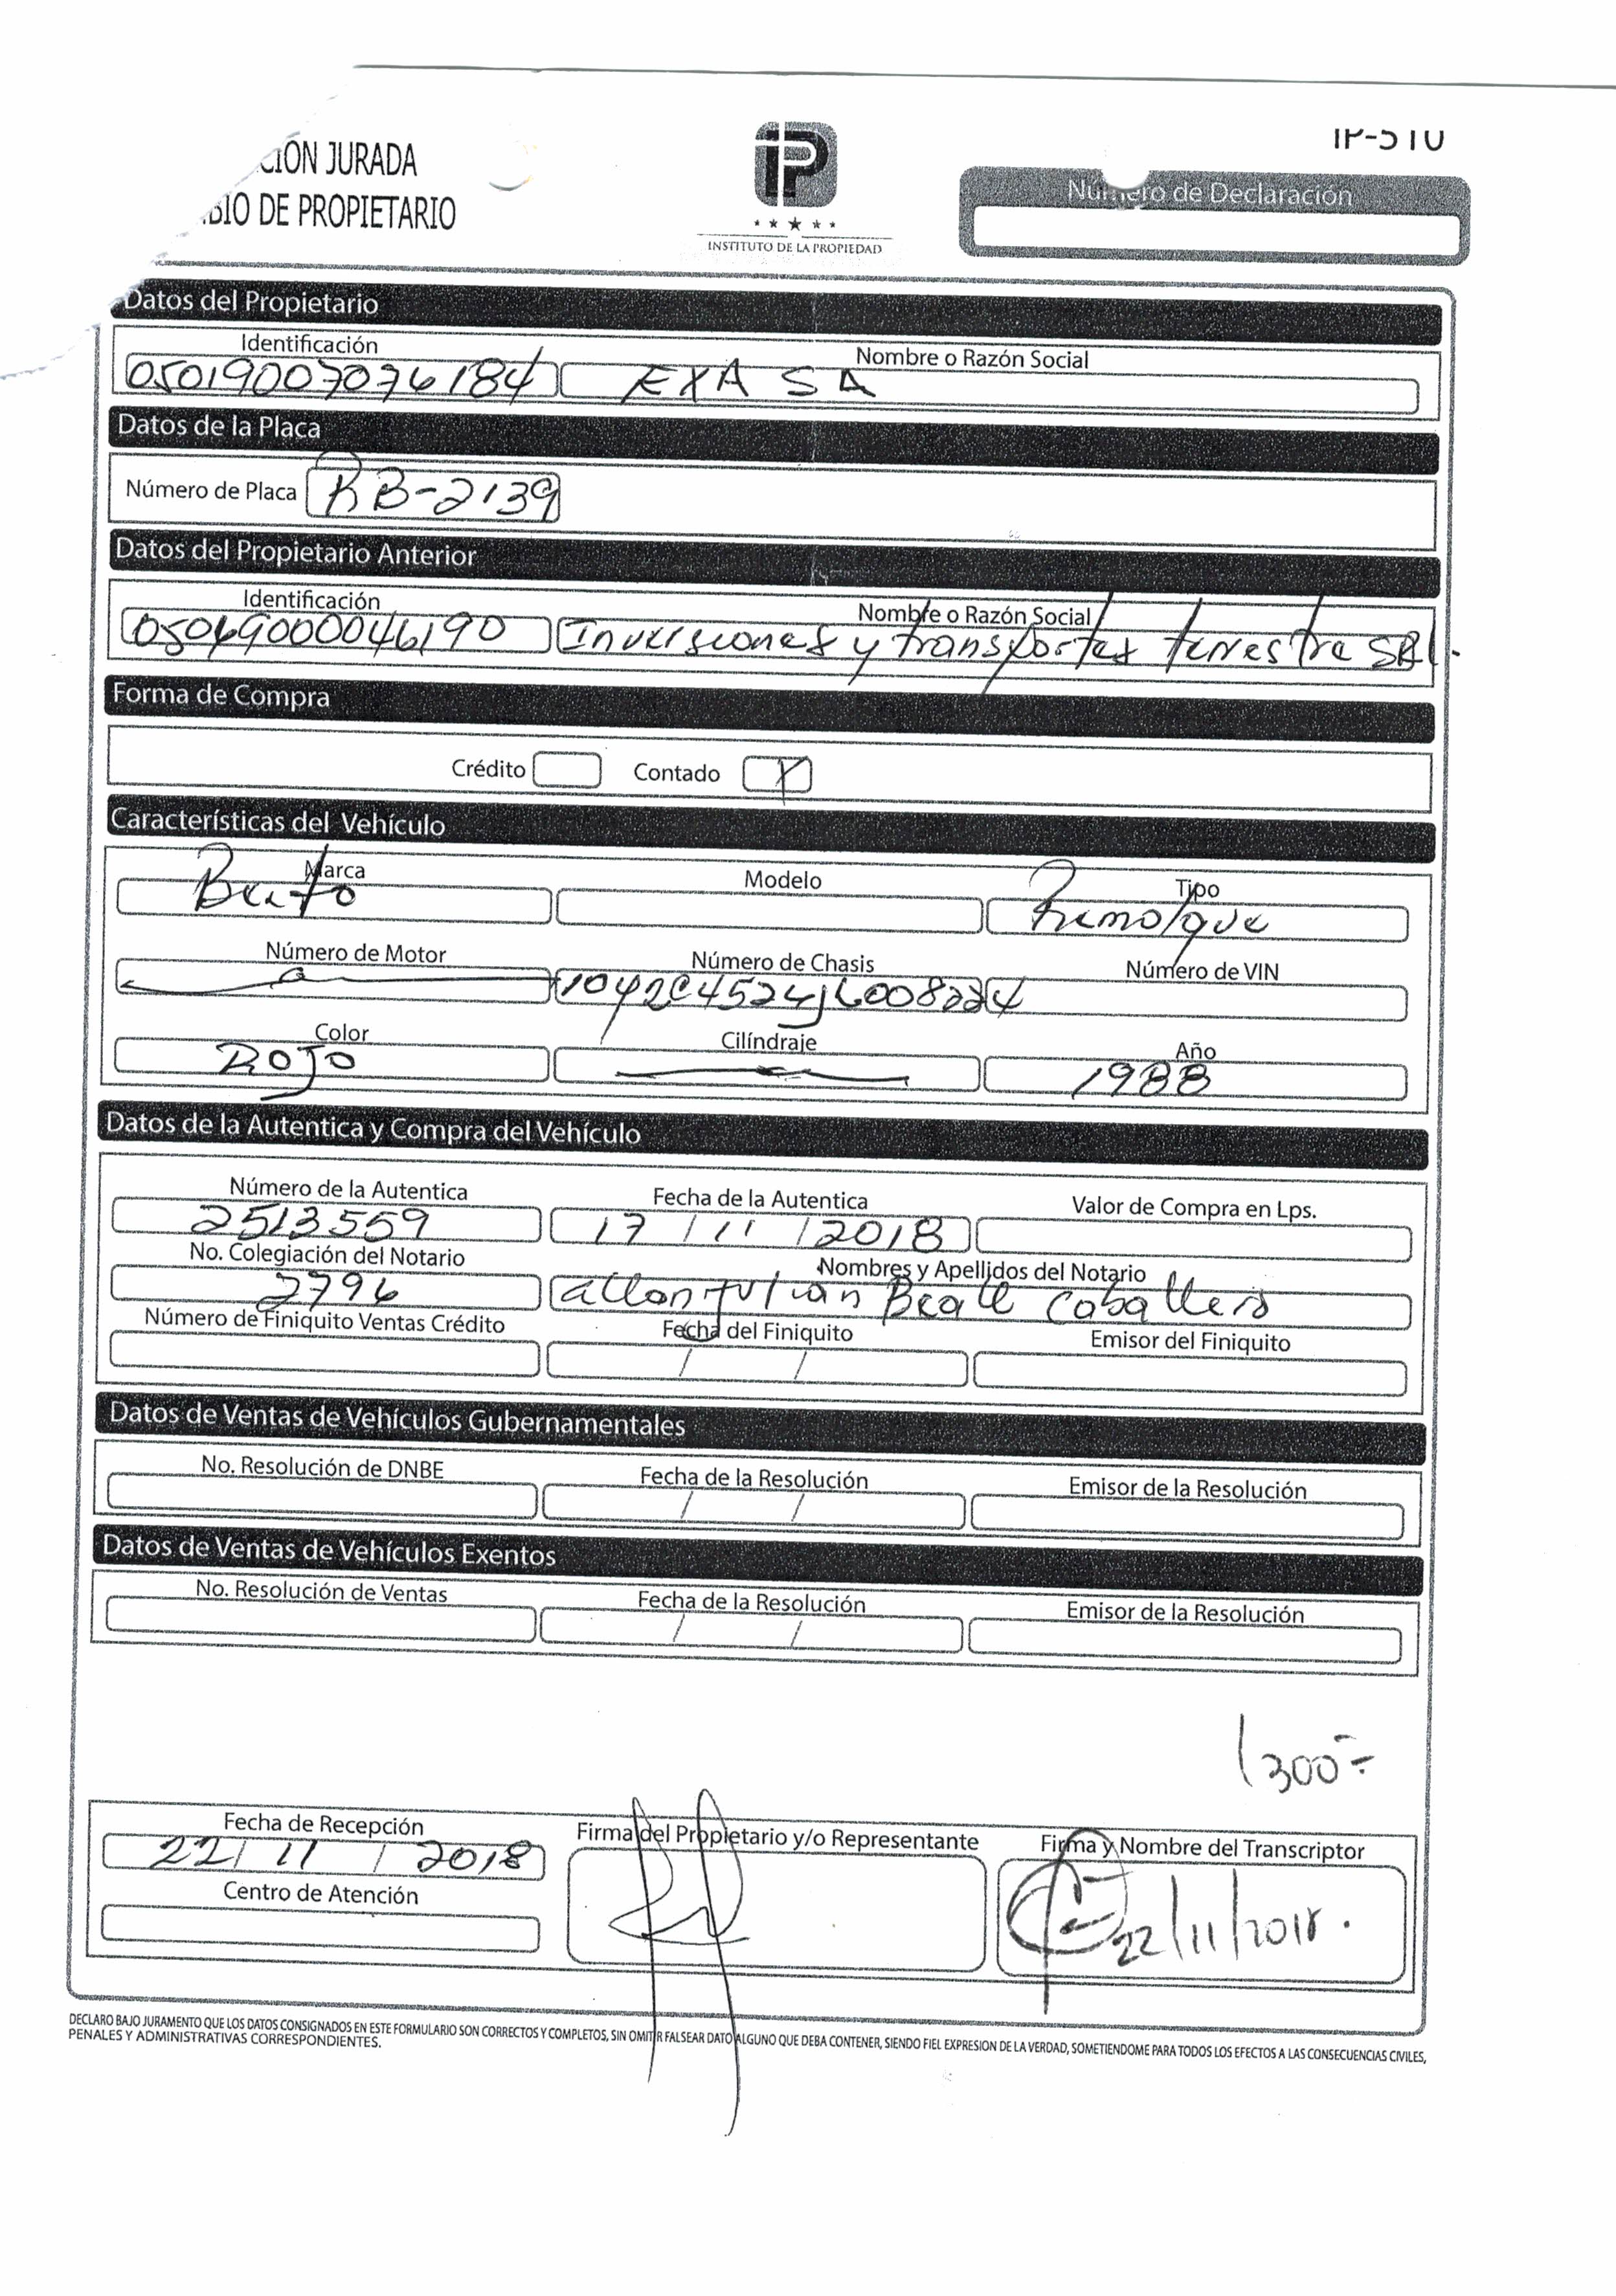 IP-510
CIÓN JURADA
BIO DE PROPIETARIO
IP
INSTITUTO DE LA PROPIEDAD
Número de Declaración
Datos del Propietario
Identificación Nombre o Razón Social
05019007076184 EXA SA
Datos de la Placa
Número de Placa RB-2139
Datos del Propietario Anterior
Identificación Nombre o Razón Social
05069000046190 Inversiones y transportes terrestre SRL.
Forma de Compra
Crédito Contado X
Características del Vehículo
Marca Modelo Tipo
Remolque
Número de Motor Número de Chasis Número de VIN
Color Cilíndraje Año
ROJO 1988
Datos de la Autentica y Compra del Vehículo
Número de la Autentica Fecha de la Autentica Valor de Compra en Lps.
2513559 17/11/2018
No. Colegiación del Notario Nombres y Apellidos del Notario
2796 allan Julian Beall Caballero
Número de Finiquito Ventas Crédito Fecha del Finiquito Emisor del Finiquito
/ /
Datos de Ventas de Vehículos Gubernamentales
No. Resolución de DNBE Fecha de la Resolución Emisor de la Resolución
/ /
Datos de Ventas de Vehículos Exentos
No. Resolución de Ventas Fecha de la Resolución Emisor de la Resolución
/ /
1300-
Fecha de Recepción Firma del Propietario y/o Representante Firma y Nombre del Transcriptor
22/11/2018
Centro de Atención
22/11/2018.
DECLARO BAJO JURAMENTO QUE LOS DATOS CONSIGNADOS EN ESTE FORMULARIO SON CORRECTOS Y COMPLETOS, SIN OMITIR FALSEAR DATO ALGUNO QUE DEBA CONTENER, SIENDO FIEL EXPRESION DE LA VERDAD, SOMETIENDOME PARA TODOS LOS EFECTOS A LAS CONSECUENCIAS CIVILES,
PENALES Y ADMINISTRATIVAS CORRESPONDIENTES.